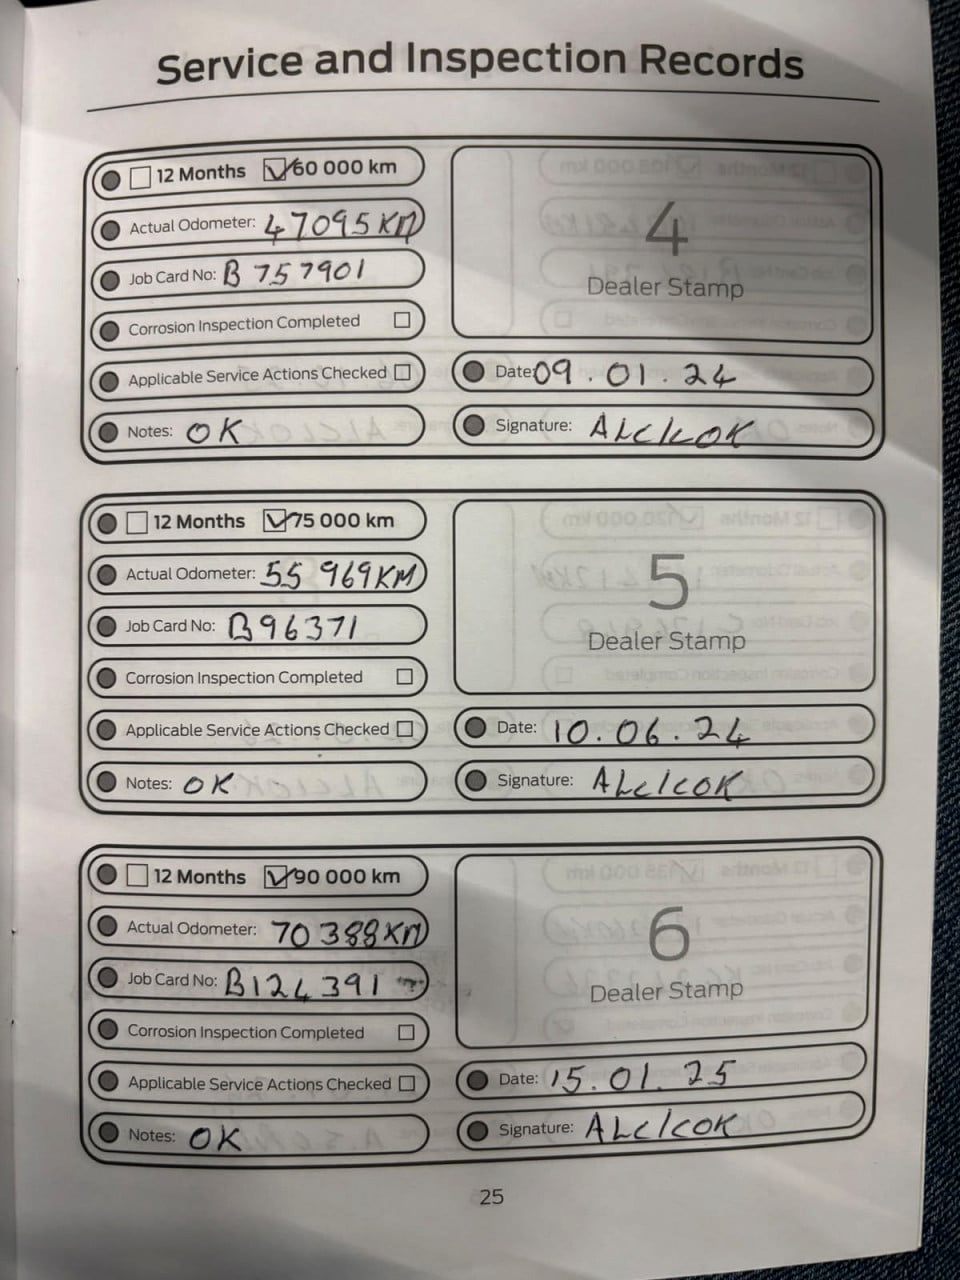 Service and Inspection Records
12 Months 60 000 km
Actual Odometer: 47095 KM
Job Card No: B 757901
Corrosion Inspection Completed
Applicable Service Actions Checked
Notes: OK
4
Dealer Stamp
Date: 09.01.24
Signature:
12 Months 75 000 km
Actual Odometer: 55 969KM
Job Card No: B96371
Corrosion Inspection Completed
Applicable Service Actions Checked
Notes: OK
5
Dealer Stamp
Date: 10.06.24
Signature:
12 Months 90 000 km
Actual Odometer: 70 388KM
Job Card No: B124391
Corrosion Inspection Completed
Applicable Service Actions Checked
Notes: OK
6
Dealer Stamp
Date: 15.01.25
Signature:
25